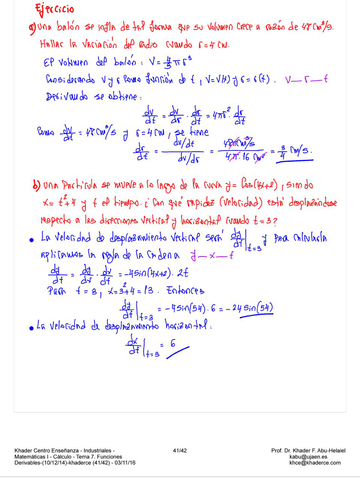 Ejercicio
a) Una balón se infla de tal forma que su volumen crece a razón de 48 cm³/s.
Hallar la variación del radio cuando r = 4 cm.
El volumen del balón: V = 4/3 π r³
Considerando V y r como función de t, V = V(t) y r = r(t). V — r — t
Derivando se obtiene:
dV/dt = dV/dr · dr/dt = 4πr² dr/dt
Como dV/dt = 48 cm³/s y r = 4 cm, se tiene
dr/dt = (dV/dt)/(dV/dr) = 48 cm³/s / 4·π·16 cm² = 3/4 cm/s.
b) Una Partícula se mueve a lo largo de la curva y = Cos(4x+2), siendo
x = t²+4 y t el tiempo. ¿Con qué rapidez (velocidad) está desplazándose
respecto a las direcciones vertical y horizontal cuando t = 3?
• La velocidad de desplazamiento vertical será dy/dt|t=3 y para calcularla
aplicamos la regla de la cadena y — x — t
dy/dt = dy/dx · dx/dt = -4 sin(4x+2) · 2t
Para t = 3, x = 3²+4 = 13. Entonces
dy/dt|t=3 = -4 sin(54) · 6 = -24 sin(54)
• La velocidad de desplazamiento horizontal:
dx/dt|t=3 = 6
Khader Centro Enseñanza - Industriales -
Matemáticas I - Cálculo - Tema 7. Funciones
Derivables-(10/12/14)-khaderce (41/42) - 03/11/16
41/42
Prof. Dr. Khader F. Abu-Helaiel
kabu@ujaen.es
khce@khaderce.com